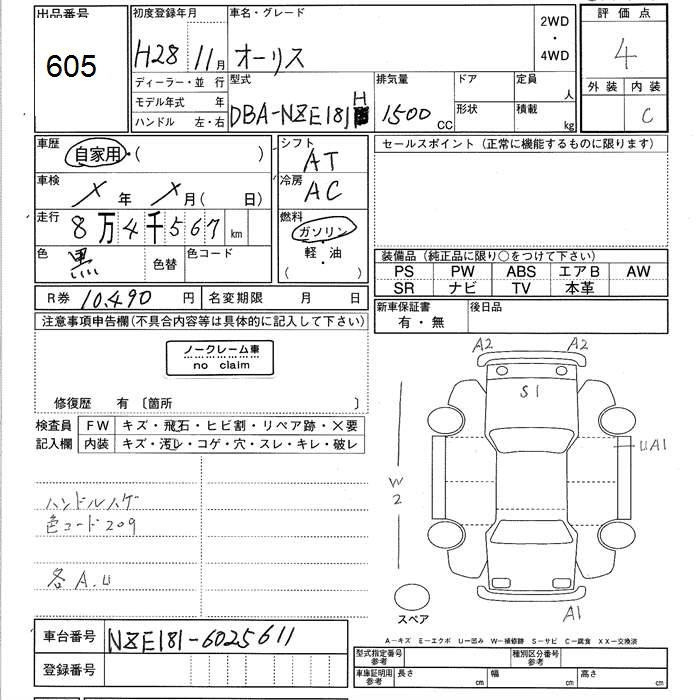 出品番号
605
初度登録年月
H28 11月
ディーラー・並 行
モデル年式 年
ハンドル 左・右
車名・グレード
オーリス
2WD
・
4WD
型式
DBA-NZE181H
排気量
1500 CC
ドア
定員 人
形状
積載 kg
評価点
4
外装 内装
C
車歴
自家用・( )
車検
年 月( 日)
走行
8万4千567 km
色
黒
色替
色コード
シフト
AT
冷房
AC
燃料
ガソリン
軽・油
( )
R券 10,490 円
名変期限 月 日
セールスポイント (正常に機能するものに限ります)
装備品 (純正品に限り○をつけて下さい)
PS PW ABS エアB AW
SR ナビ TV 本革
新車保証書
有・無
後日品
注意事項申告欄(不具合内容等は具体的に記入して下さい)
ノークレーム車
no claim
修復歴 有 〔箇所 〕
検査員
記入欄
FW キズ・飛石・ヒビ割・リペア跡・×要
内装 キズ・汚レ・コゲ・穴・スレ・キレ・破レ
ハンドルハゲ
色コード209
各A.U
A2 A2
S1
UA1
W2
A1
スペア
A-キズ E-エクボ U-凹み W-補修跡 S-サビ C-腐食 XX-交換済
車台番号 NZE181-6025611
登録番号
型式指定番号
参考
種別区分番号
参考
車庫証明用
参考
長さ cm
幅 cm
高さ cm